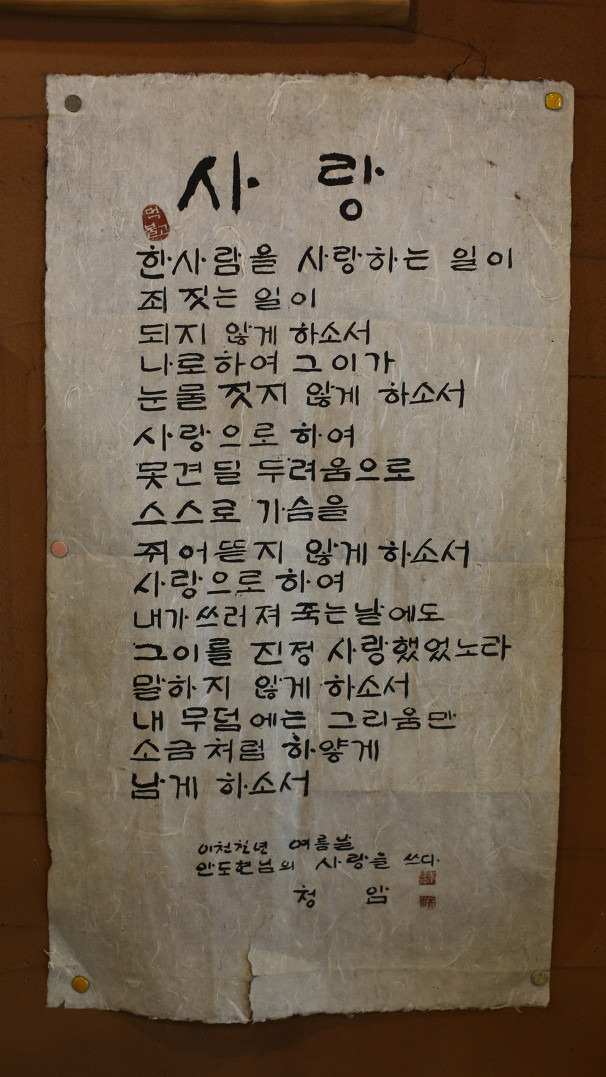 사랑
한사람을 사랑하는 일이
죄 짓는 일이
되지 않게 하소서
나로하여 그이가
눈물 짓지 않게 하소서
사랑으로 하여
못견딜 두려움으로
스스로 가슴을
쥐어뜯지 않게 하소서
사랑으로 하여
내가 쓰러져 죽는날에도
그이를 진정 사랑했었노라
말하지 않게 하소서
내 무덤에는 그리움만
소금처럼 하얗게
남게 하소서
이천칠년 여름날
안도현님의 사랑을 쓰다.
청암